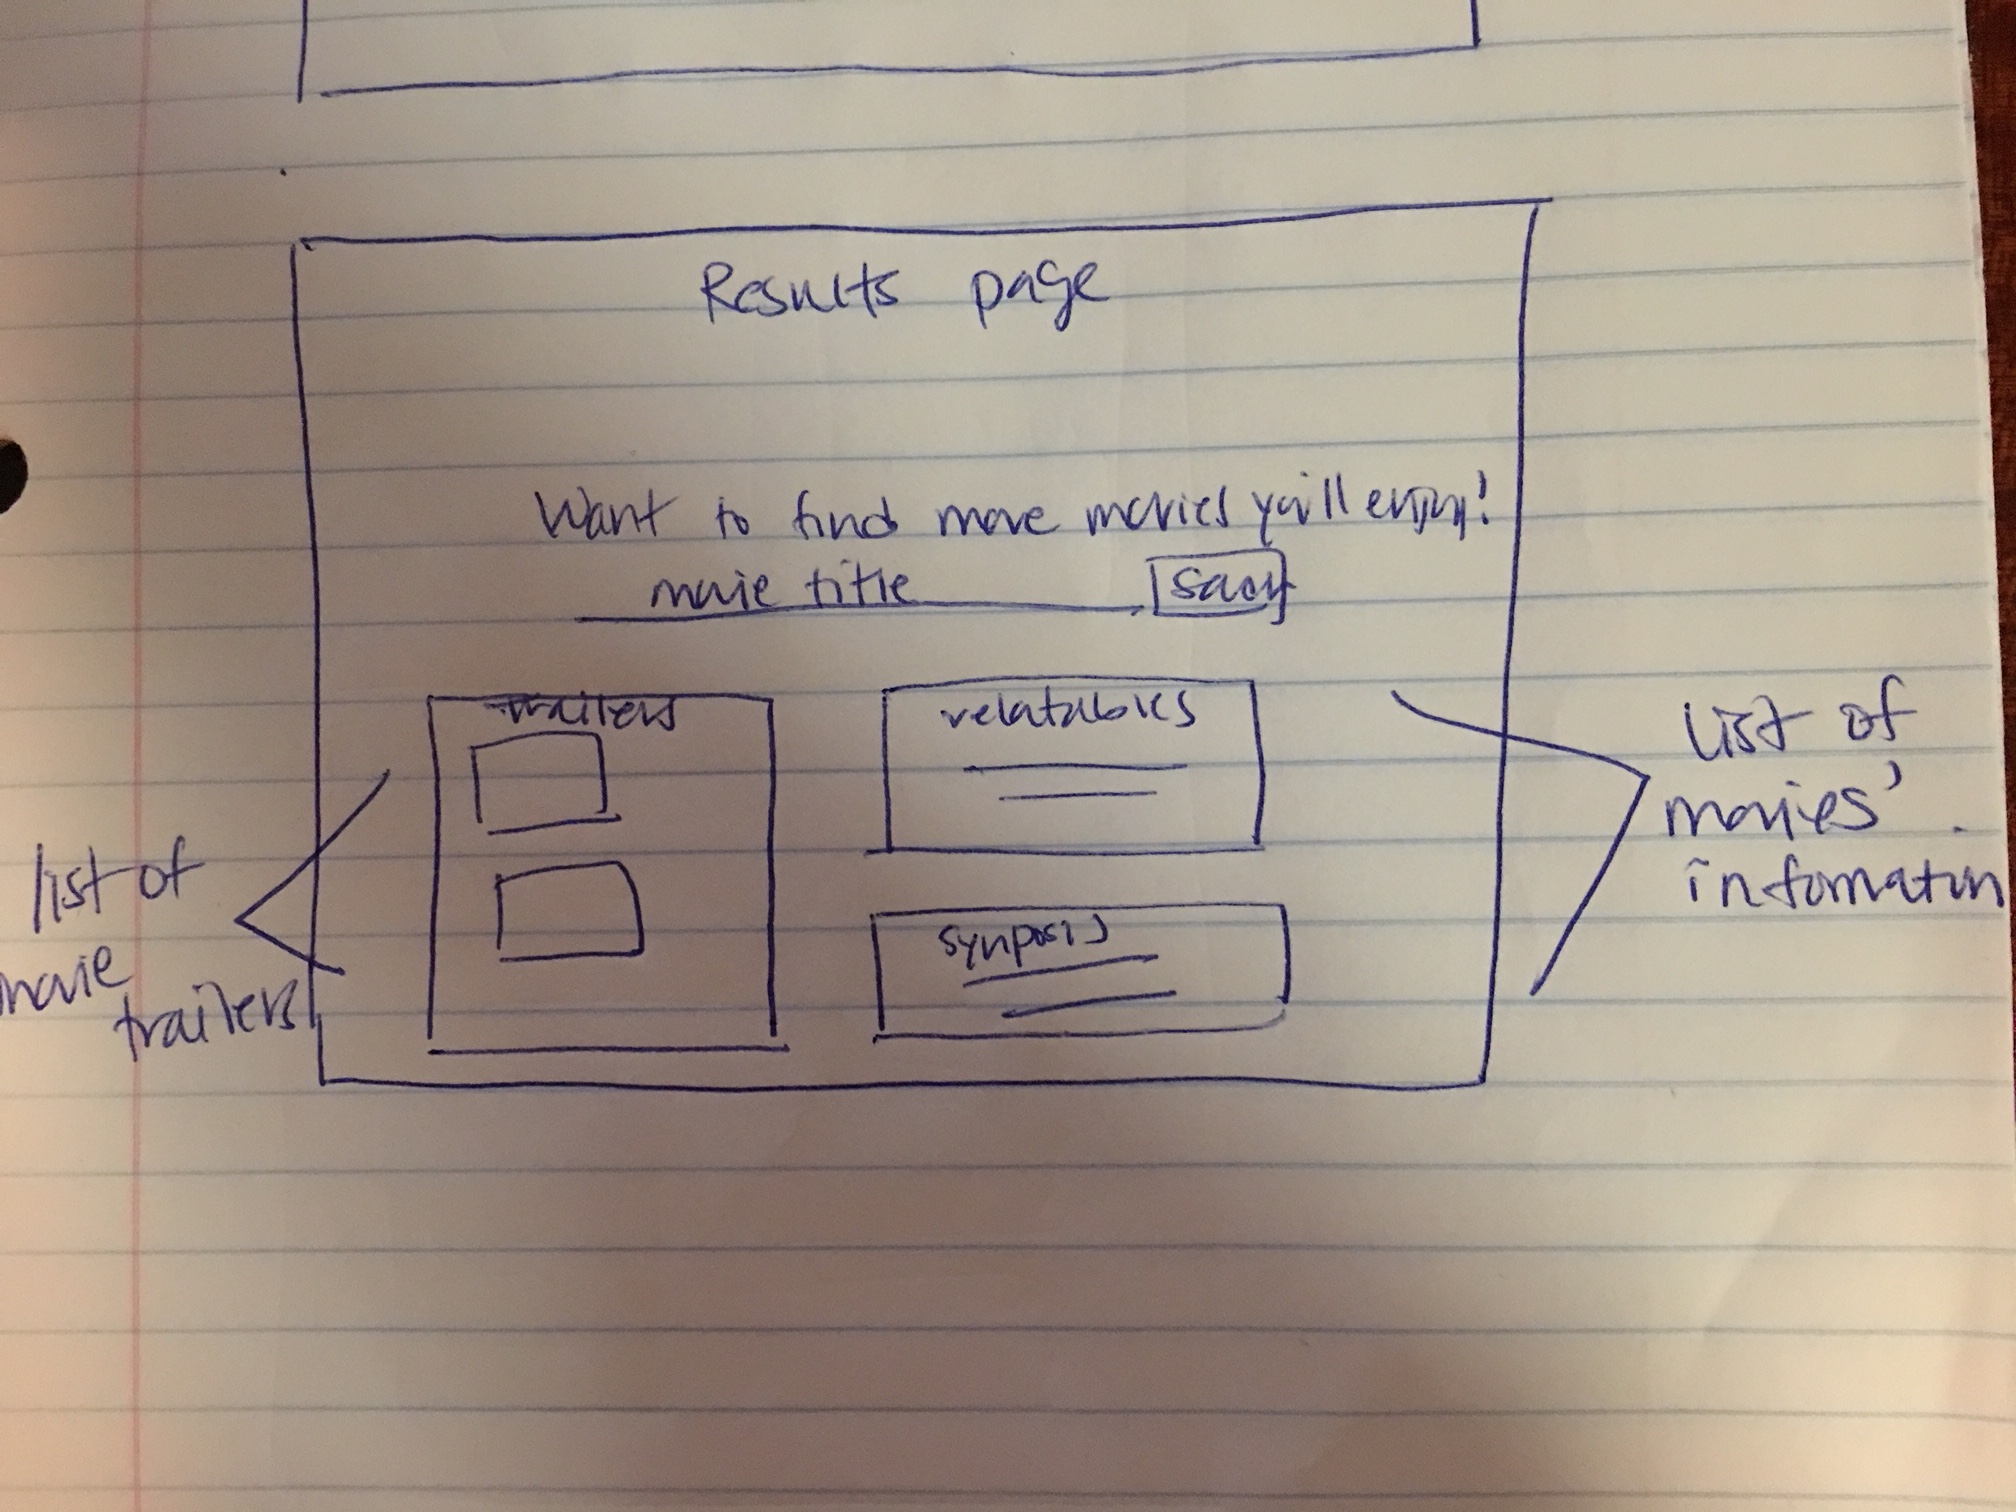 Results page
Want to find more movies you'll enjoy!
movie title
trailers
relatables
synposis
list of
movie
trailers
List of
movies'
information